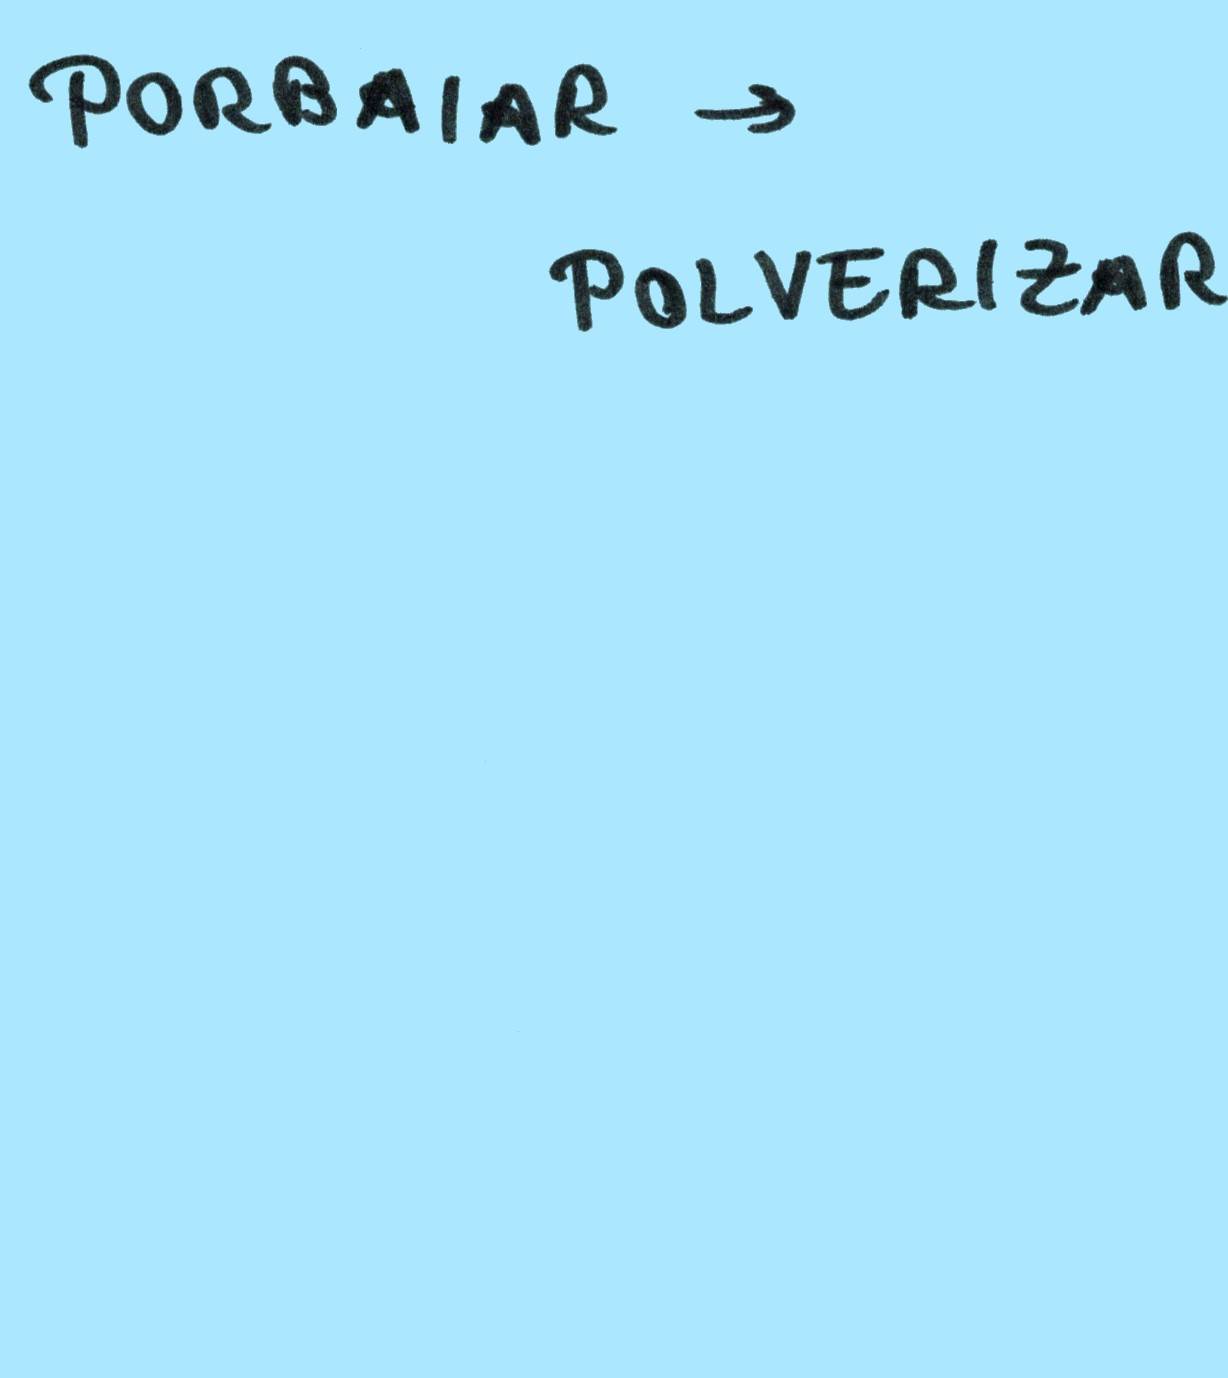 PORBAIAR →
POLVERIZAR